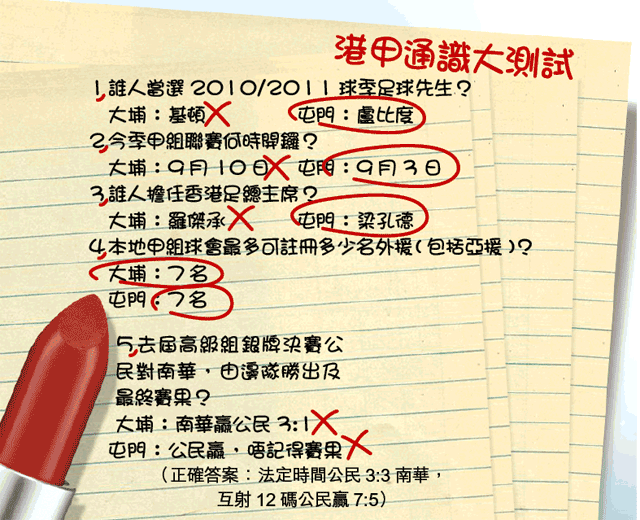 港甲通識大測試
1,誰人當選 2010/2011 球季足球先生？
大埔：基頓 屯門：盧比度
2,今季甲組聯賽何時開鑼？
大埔：9月10日 屯門：9月3日
3,誰人擔任香港足總主席？
大埔：羅傑承 屯門：梁孔德
4,本地甲組球會最多可註冊多少名外援(包括亞援)？
大埔：7名
屯門：7名
5,去屆高級組銀牌決賽公
民對南華，由邊隊勝出及
最終賽果？
大埔：南華贏公民 3:1
屯門：公民贏，唔記得賽果
（正確答案：法定時間公民 3:3 南華，
互射 12 碼公民贏 7:5）